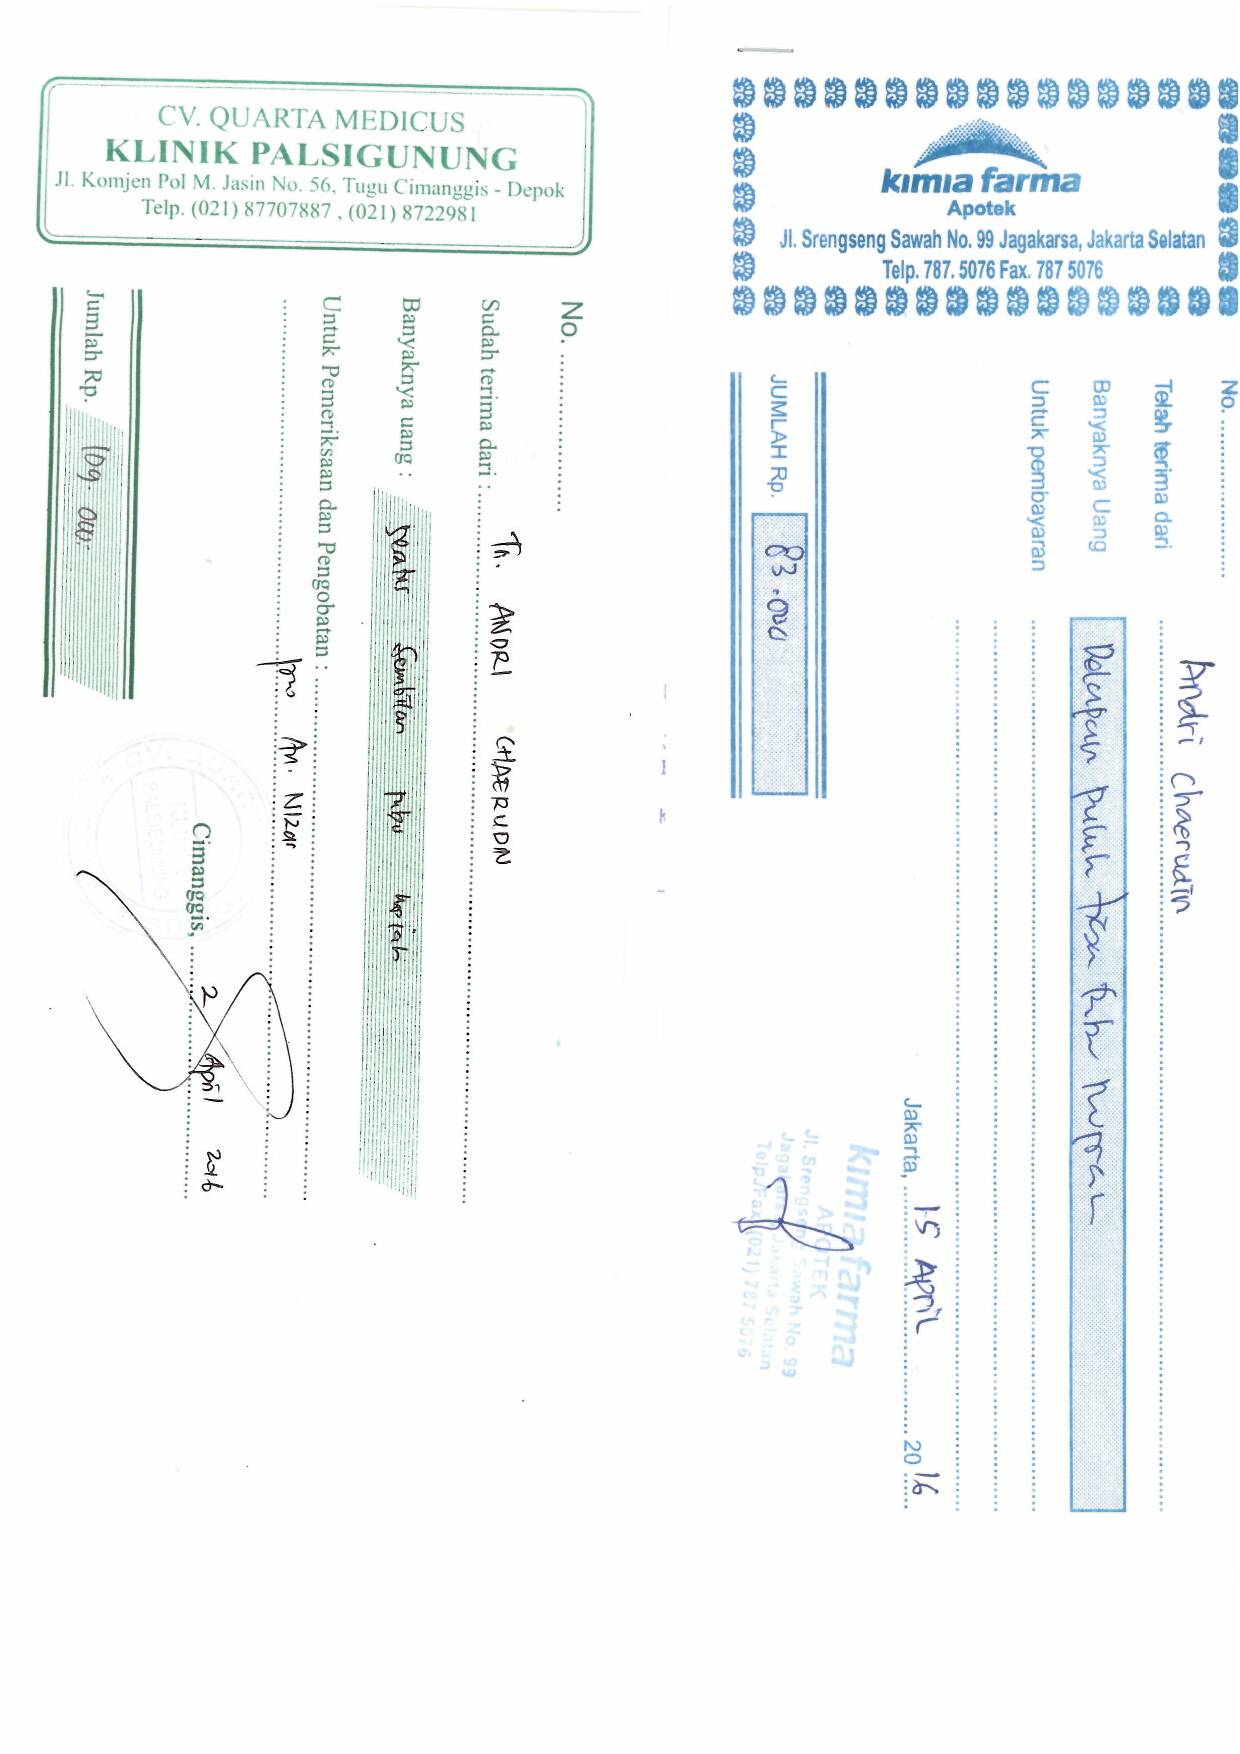 CV. QUARTA MEDICUS
KLINIK PALSIGUNUNG
Jl. Komjen Pol M. Jasin No. 56, Tugu Cimanggis - Depok
Telp. (021) 87707887 , (021) 8722981
No. ........................
Sudah terima dari : Tn. ANDRI CHAERUDN
Banyaknya uang : Seratus Sembilan ribu rupiah
Untuk Pemeriksaan dan Pengobatan :
An. Nizar
Cimanggis, 2 April 2016
Jumlah Rp. 109.000,-
kimia farma
Apotek
Jl. Srengseng Sawah No. 99 Jagakarsa, Jakarta Selatan
Telp. 787. 5076 Fax. 787 5076
No. ........................
Telah terima dari Andri Chaerudin
Banyaknya Uang Delapan puluh tiga Ribu Rupiah
Untuk pembayaran
Jakarta, 15 April 2016
JUMLAH Rp. 83.000
kimia farma
APOTEK
Jl. Srengseng Sawah No. 99
Jagakarsa Jakarta Selatan
Telp./Fax (021) 787 5076